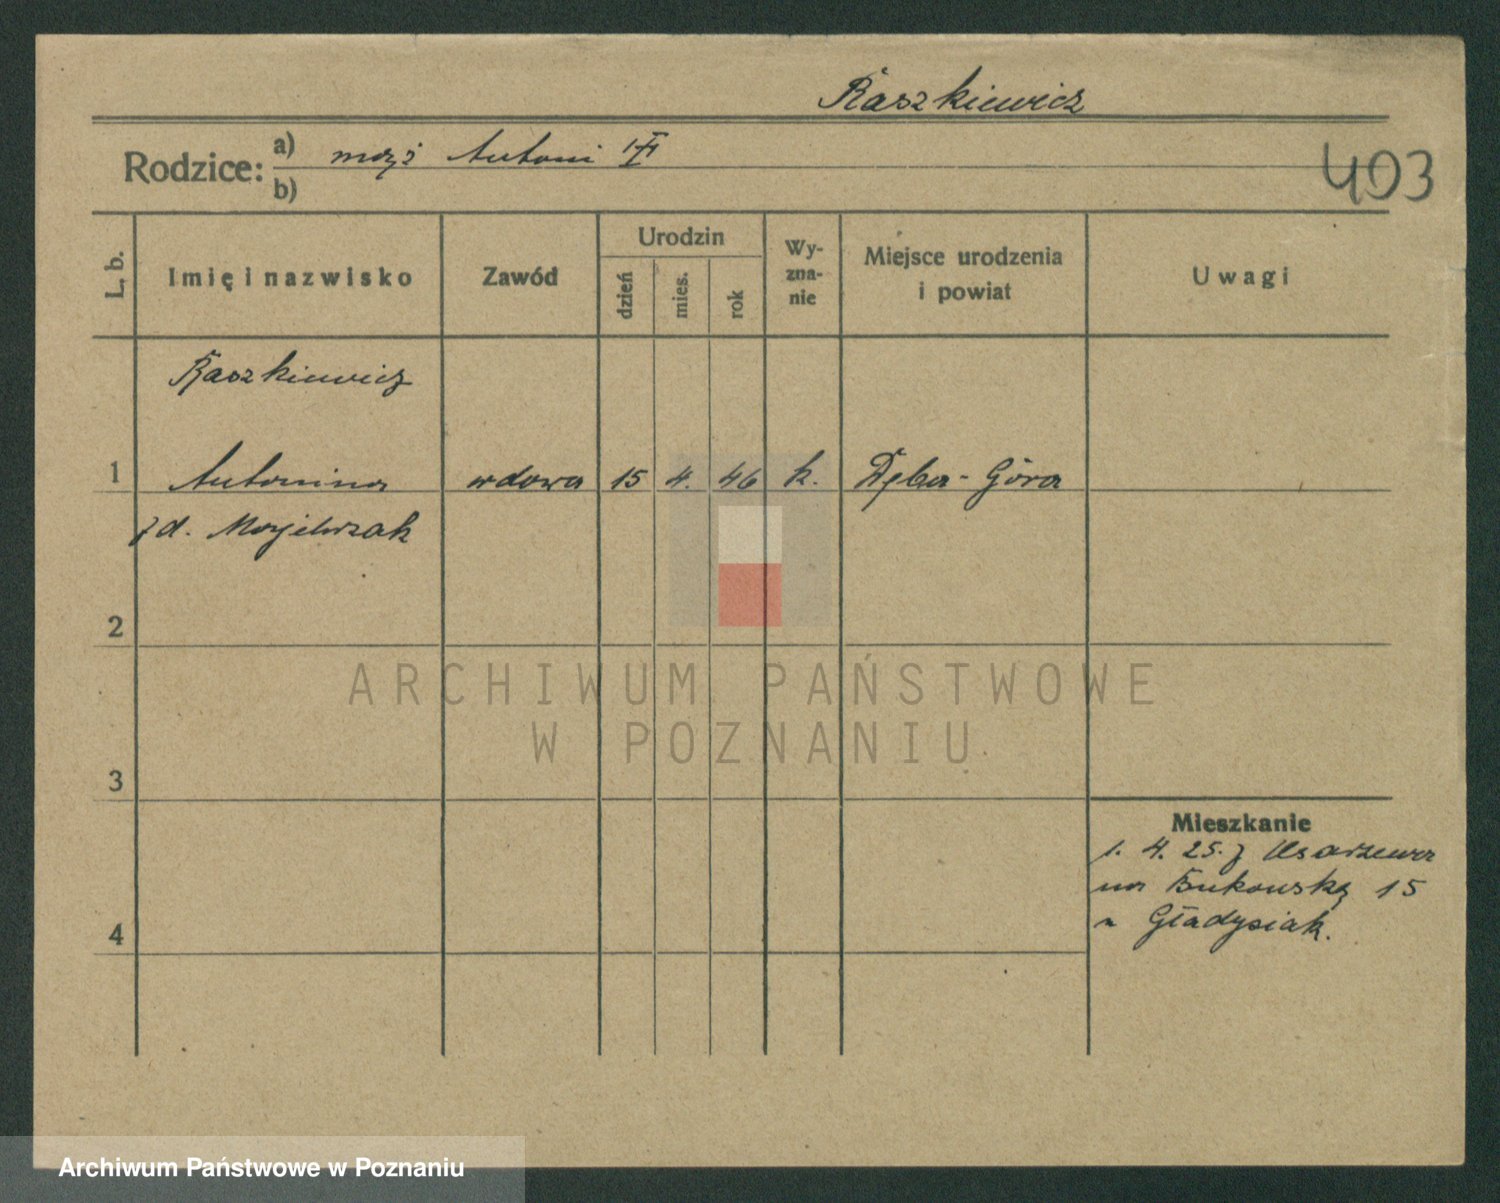 Raszkiewicz
Rodzice: a) mąż Antoni
b)
403
L. b.
Imię i nazwisko
Zawód
Urodzin
dzień
mies.
rok
Wy-
zna-
nie
Miejsce urodzenia
i powiat
Uwagi
Raszkiewicz
1 Antonina wdowa 15 4. 46 k. Dęba-Góra
z d.
2
3
4
Mieszkanie
1. 4. 25. z
na Bukowską 15
Gładysiak.
ARCHIWUM PAŃSTWOWE
W POZNANIU
Archiwum Państwowe w Poznaniu